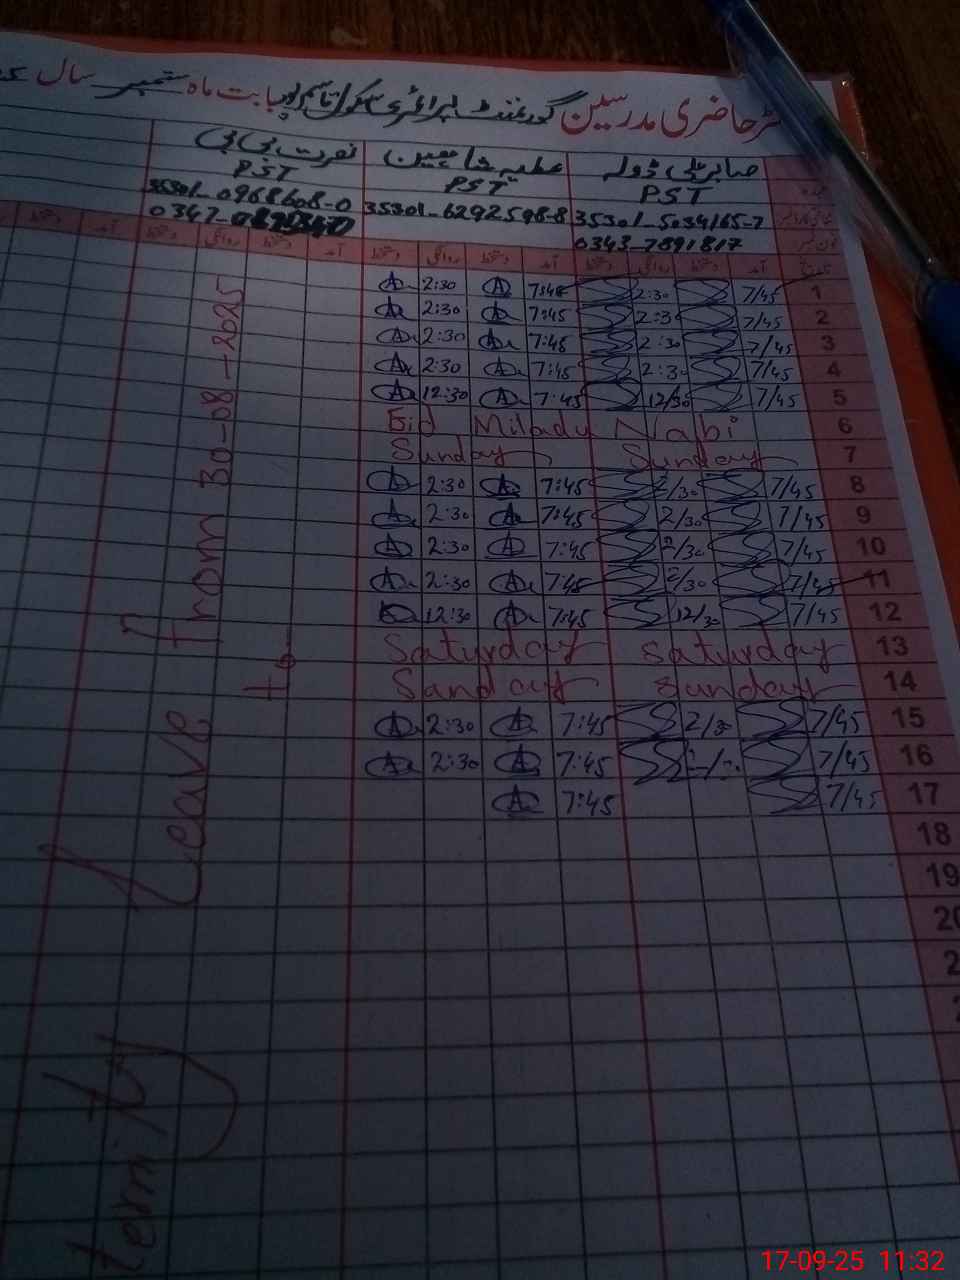 رحاضری مدرسین گورنمنٹ پرائمری سکول بابت ماہ ستمبر سال
PST
نصرت بی بی
PST
PST
35301-5034165-7
35301-6292598-8
35301-0968608-0
0343-7891817
آمد دستخط روانگی دستخط آمد دستخط روانگی دستخط آمد دستخط روانگی دستخط
1 7/45 2:30 7:45 2:30
2 7/45 2:3 7:45 2:30
3 7/45 2:30 7:45 2:30
4 7/45 2:30 7:45 2:30
5 7/45 12/30 7:45 12:30
6 Eid Milady Nabi
7 Sunday Sunday
8 7/45 2/30 7:45 2:30
9 7/45 2/30 7:45 2:30
10 7/45 2/30 7:45 2:30
11 7/45 2/30 7:45 2:30
12 7/45 12/30 7:45 12:30
13 Saturday Saturday
14 Sunday Sanday
15 7/45 2/30 7:45 2:30
16 7/45 7:45 2:30
17 7/45 7:45
18
19
ternity Leave from 30-08-2025
to
17-09-25 11:32